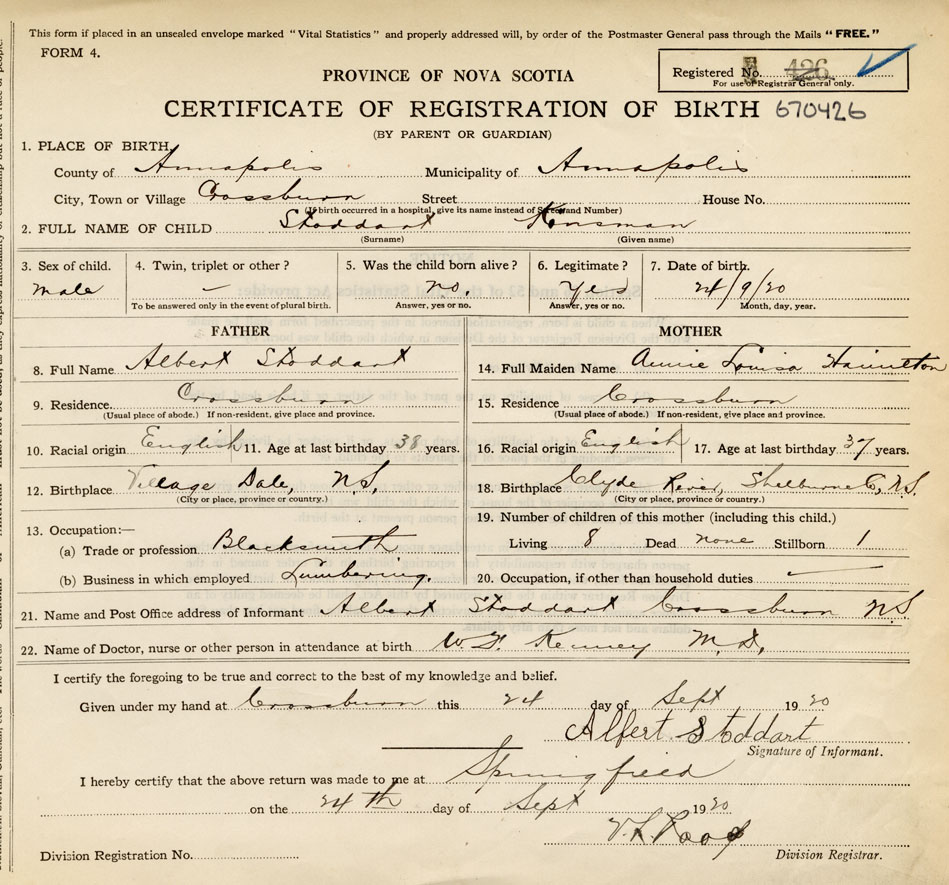 This form if placed in an unsealed envelope marked "Vital Statistics" and properly addressed will, by order of the Postmaster General pass through the Mails "FREE."
FORM 4.
Registered No. 426
For use of Registrar General only.
PROVINCE OF NOVA SCOTIA
CERTIFICATE OF REGISTRATION OF BIRTH 670426
(BY PARENT OR GUARDIAN)
1. PLACE OF BIRTH,
County of Annapolis Municipality of Annapolis
City, Town or Village Crossburn Street House No.
(If birth occurred in a hospital, give its name instead of Street and Number)
2. FULL NAME OF CHILD Stoddart Kinsman
(Surname) (Given name)
3. Sex of child. 4. Twin, triplet or other? 5. Was the child born alive? 6. Legitimate? 7. Date of birth.
male — no. Yes 24/9/20
To be answered only in the event of plural birth. Answer, yes or no. Answer, yes or no. Month, day, year.
FATHER MOTHER
8. Full Name Albert Stoddart 14. Full Maiden Name Annie Louisa Hamilton
9. Residence. Crossburn 15. Residence Crossburn
(Usual place of abode.) If non-resident, give place and province. (Usual place of abode.) If non-resident, give place and province.
10. Racial origin English 11. Age at last birthday 38 years. 16. Racial origin English 17. Age at last birthday 37 years.
12. Birthplace Village Dale, N.S. 18. Birthplace Clyde River, Shelburne Co, N.S.
(City or place, province or country.) (City or place, province or country.)
13. Occupation:— 19. Number of children of this mother (including this child.)
(a) Trade or profession Blacksmith Living 8 Dead none Stillborn 1
(b) Business in which employed Lumbering. 20. Occupation, if other than household duties —
21. Name and Post Office address of Informant Albert Stoddart Crossburn N.S.
22. Name of Doctor, nurse or other person in attendance at birth W. F. Kenney M.D.
I certify the foregoing to be true and correct to the best of my knowledge and belief.
Given under my hand at Crossburn this 24 day of Sept 1920
Albert Stoddart
Signature of Informant.
I hereby certify that the above return was made to me at Springfield
on the 24th day of Sept 1920
Division Registration No. Division Registrar.